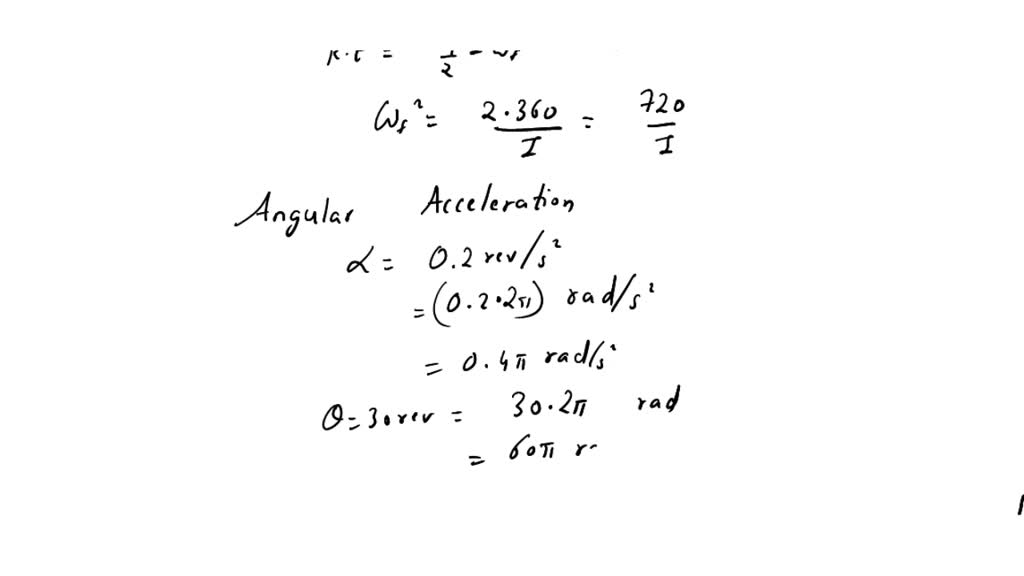 1/2
ω_f² = 2·360/I = 720/I
Angular Acceleration
α = 0.2 rev/s²
= (0.2·2π) rad/s²
= 0.4π rad/s²
θ = 30 rev = 30·2π rad
= 60π r